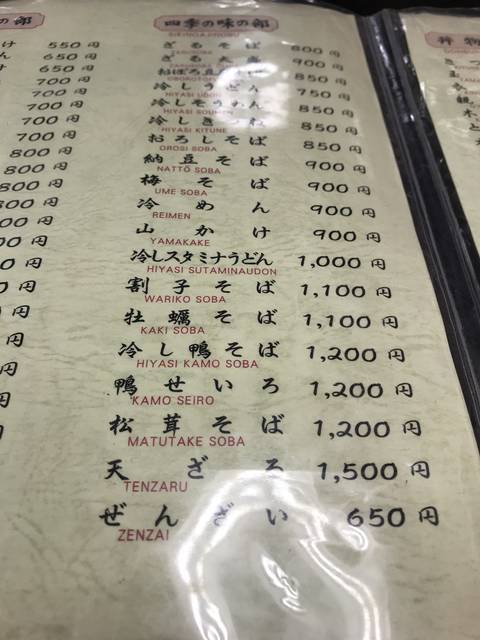 の郷
け 550円
650円
650円
700円
700円
700円
700円
700円
800円
800円
800円
800円
四季の味の郷
ざるそば 800円
ざる大盛 900円
おぼろ豆腐 850円
冷しうどん 750円
HIYASI UDON
冷しそうめん 850円
HIYASI SOUMEN
冷しきつね 850円
HIYASI KITUNE
おろしそば 850円
OROSI SOBA
納豆そば 900円
NATTŌ SOBA
梅そば 900円
UME SOBA
冷めん 900円
REIMEN
山かけ 900円
YAMAKAKE
冷しスタミナうどん 1,000円
HIYASI SUTAMINAUDON
割子そば 1,100円
WARIKO SOBA
牡蠣そば 1,100円
KAKI SOBA
冷し鴨そば 1,200円
HIYASI KAMO SOBA
鴨せいろ 1,200円
KAMO SEIRO
松茸そば 1,200円
MATUTAKE SOBA
天ざる 1,500円
TENZARU
ぜんざい 650円
ZENZAI
丼物